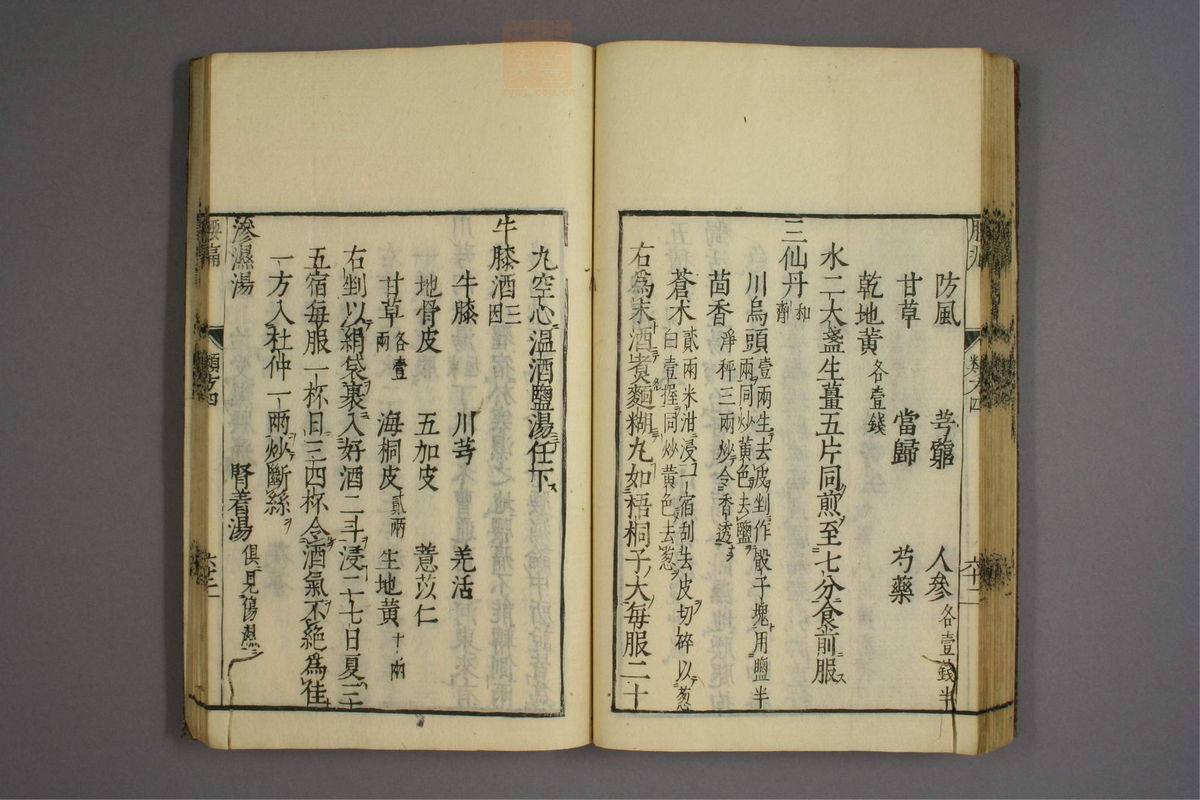 防風　芎藭　人參各壹錢半
甘草　當歸　芍藥
乾地黃各壹錢
水二大盞生薑五片同煎至七分食前服
三仙丹和劑
川烏頭壹兩生去皮剉作骰子塊用鹽半兩同炒黃色去鹽
茴香淨秤三兩炒令香透
蒼朮貳兩米泔浸一宿刮去皮切碎以葱白壹握同炒黃色去葱
右爲末酒煮麵糊丸如梧桐子大每服二十
六十二
丸空心温酒鹽湯任下
牛膝酒三因
牛膝　川芎　羌活
地骨皮　五加皮　薏苡仁
甘草各壹兩　海桐皮貳兩　生地黃十兩
右剉以絹袋裹入好酒二斗浸二七日夏三
五宿每服一杯日三四杯令酒氣不絕爲佳
一方入杜仲一兩炒斷絲
滲濕湯　腎着湯俱見傷濕
腰痛
類方四
六十三